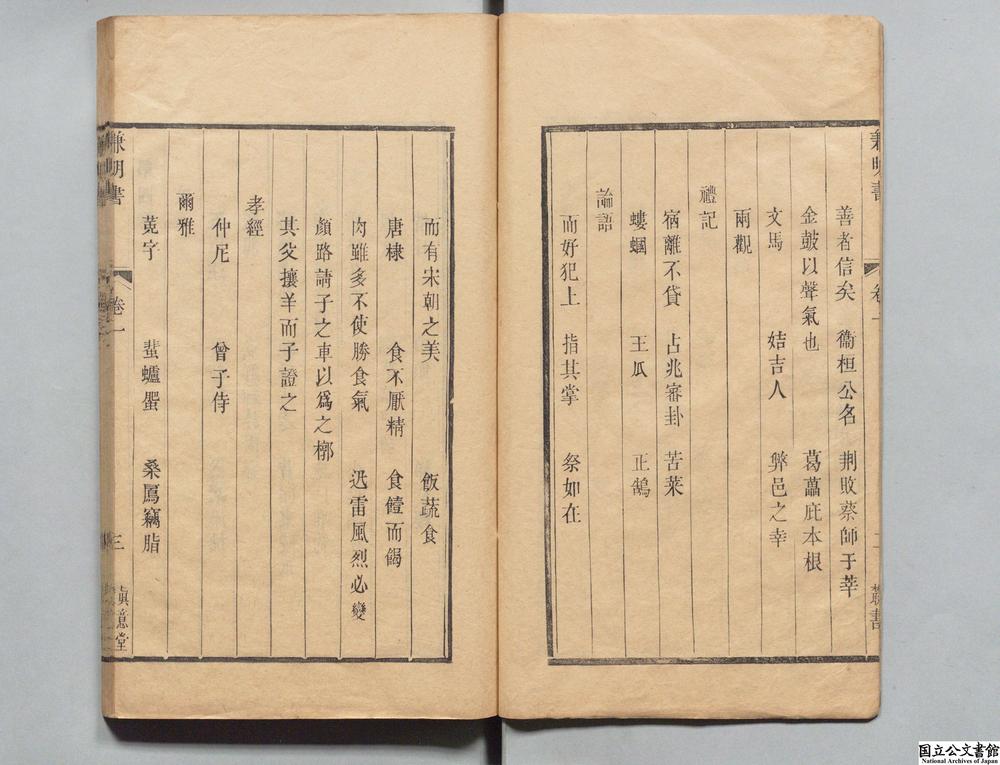 善者信矣 衞桓公名 荆敗蔡師于莘
金鼓以聲氣也 葛藟庇本根
文馬 姞吉人 弊邑之幸
兩觀
禮記
宿離不貸 占兆審卦 苦菜
螻蟈 王瓜 正鵠
論語
而好犯上 指其掌 祭如在
兼明書 卷一 二
而有宋朝之美 飯蔬食
唐棣 食不厭精 食饐而餲
肉雖多不使勝食氣 迅雷風烈必變
顏路請子之車以爲之槨
其父攘羊而子證之
孝經
仲尼 曾子侍
爾雅
萈字 蜚蠦蜰 桑鳸竊脂
兼明書 卷一 三 眞意堂
国立公文書館
National Archives of Japan